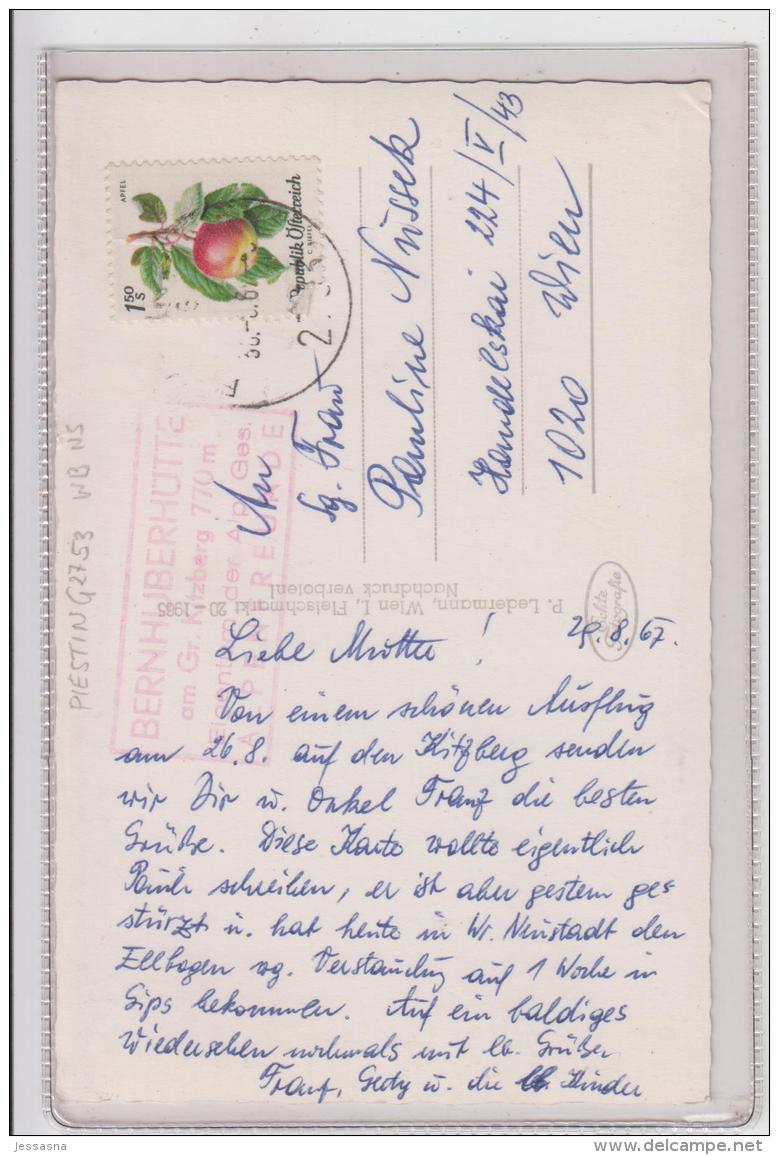 APFEL
Republik Österreich
1 50 S
BERNHUBERHÜTTE
am Gr. Kitzberg 770 m
Eigentum der Alp. Ges.
ALPENFREUNDE
PIESTING 2753 WB NS
An
Sg. Frau
Pauline Nüssek
Handelskai 224/V/43
1020 Wien
P. Ledermann, Wien I, Fleischmarkt 20 1965
Nachdruck verboten!
Echte
Fotografie
29.8.67.
Liebe Mutter!
Von einem schönen Ausflug
am 26.8. auf den Kitzberg senden
wir Dir u. Onkel Franz die besten
Grüße. Diese Karte wollte eigentlich
schreiben, er ist aber gestern ge=
stürzt u. hat heute in Wr. Neustadt den
Ellbogen wg. Verstauchung auf 1 Woche in
Gips bekommen. Auf ein baldiges
Wiedersehen nochmals mit lb. Grüßen
Franz, u. die Kinder
jessasna
www.delcampe.net